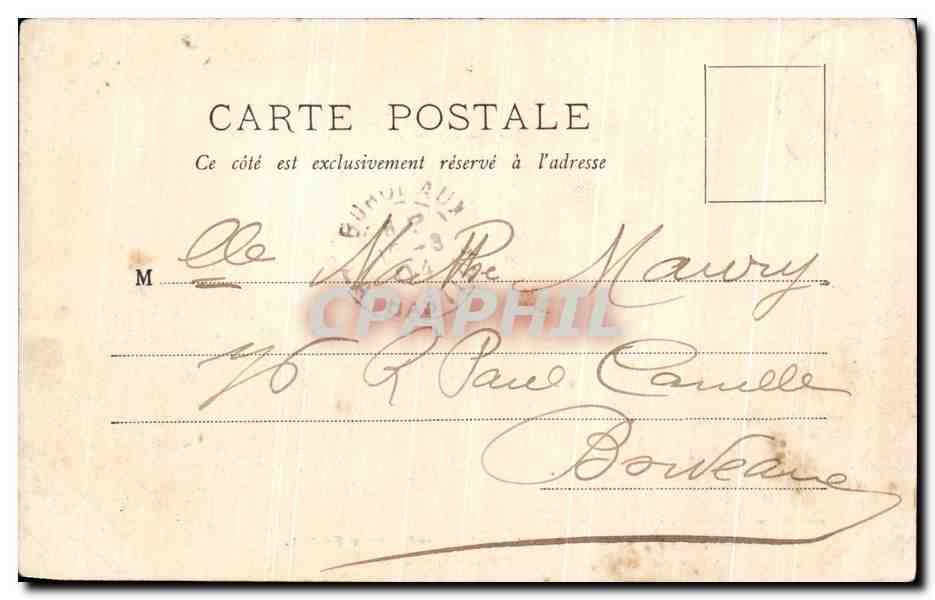 CARTE POSTALE
Ce côté est exclusivement réservé à l'adresse
BORDEAUX
-3
04
Mlle Maury
76 R Paul Camille
Bordeaux
CPAPHIL